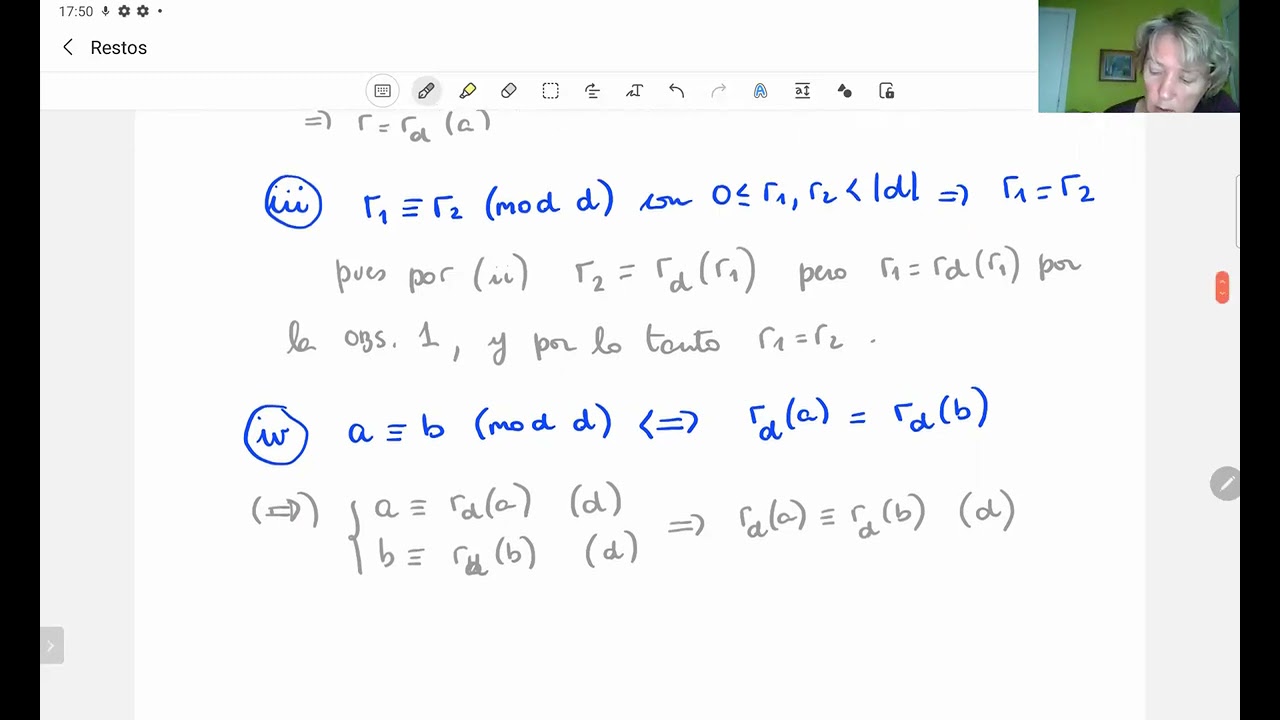 17:50
Restos
=> r = r_d (a)
iii r₁ ≡ r₂ (mod d) con 0 ≤ r₁, r₂ < |d| => r₁ = r₂
pues por (ii) r₂ = r_d(r₁) pero r₁ = r_d(r₁) por
la obs. 1, y por lo tanto r₁ = r₂ .
iv a ≡ b (mod d) <=> r_d(a) = r_d(b)
(=>) { a ≡ r_d(a) (d)
b ≡ r_d(b) (d) => r_d(a) ≡ r_d(b) (d)